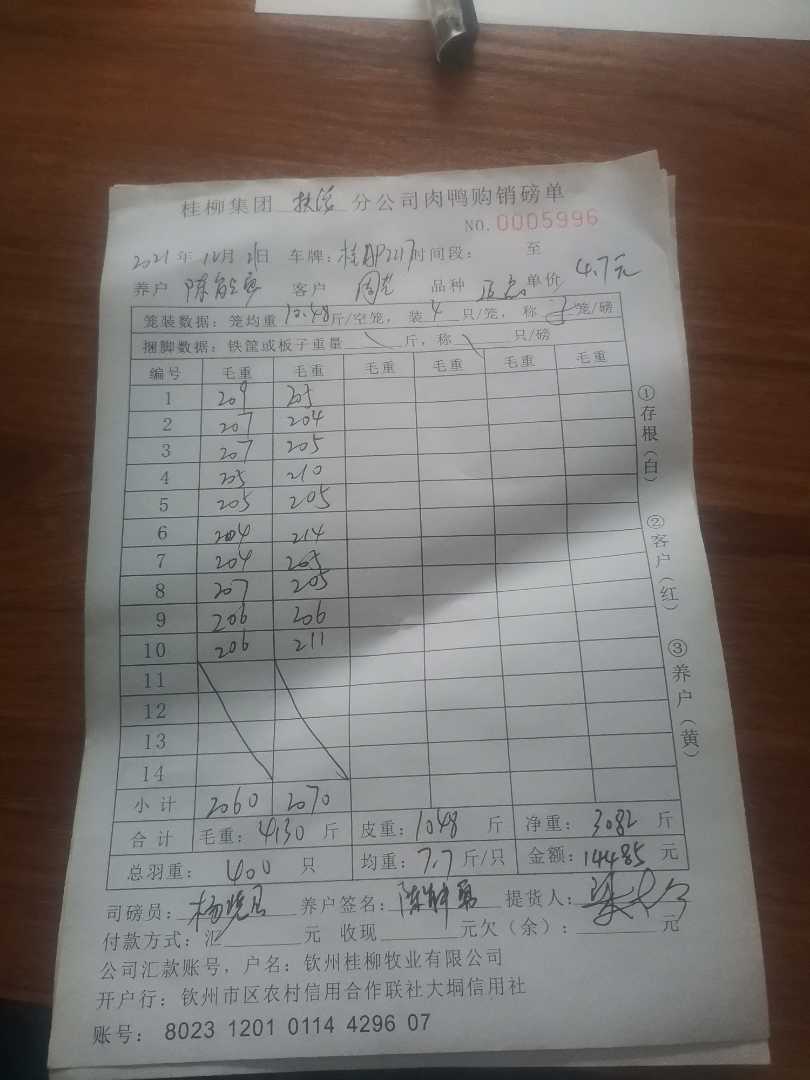 桂柳集团 分公司肉鸭购销磅单
NO. 0005996
2021 年 12月 日 车牌: 桂 P2217 时间段: 至
养户 陈 客户 周 品种 单价 4.7元
笼装数据: 笼均重 10.48 斤/空笼, 装 4 只/笼, 称 笼/磅
捆脚数据: 铁筐或板子重量 斤, 称 只/磅
编号 毛重 毛重 毛重 毛重 毛重 毛重
1 209 205
2 207 204
3 207 205
4 205 210
5 205 205
6 204 214
7 204 205
8 207 205
9 206 206
10 206 211
11
12
13
14
小计 2060 2070
合计 毛重: 4130 斤 皮重: 1048 斤 净重: 3082 斤
总羽重: 400 只 均重: 7.7 斤/只 金额: 14485 元
司磅员: 杨 养户签名: 陈 提货人:
付款方式: 汇 元 收现 元欠(余): 元
公司汇款账号, 户名: 钦州桂柳牧业有限公司
开户行: 钦州市区农村信用合作联社大垌信用社
账号: 8023 1201 0114 4296 07
①存根(白) ②客户(红) ③养户(黄)